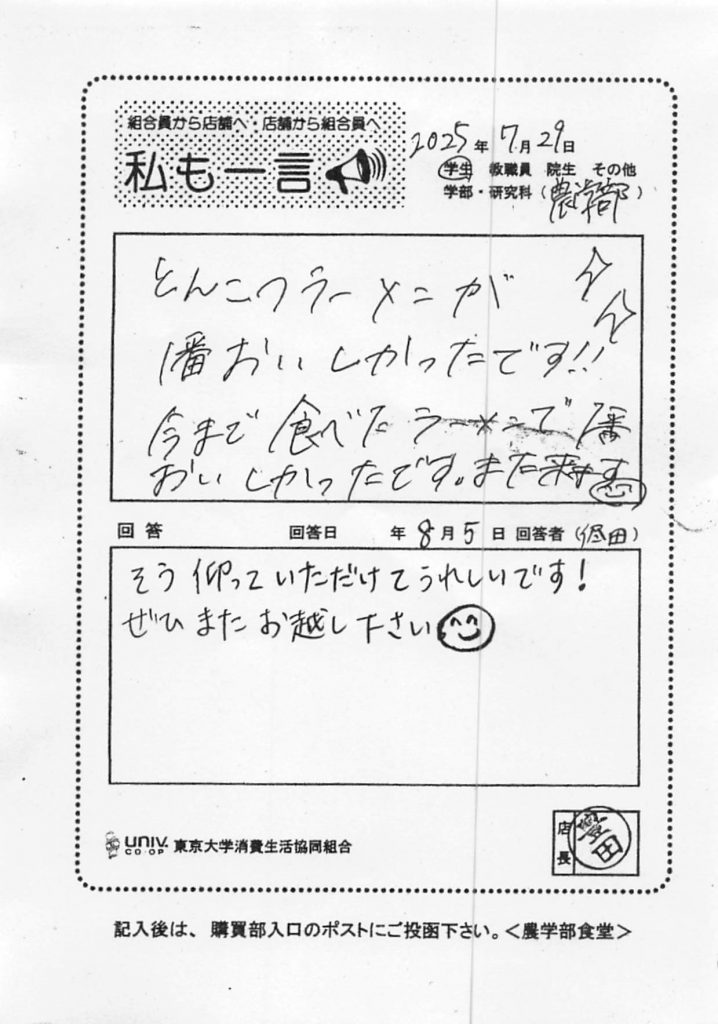 組合員から店舗へ・店舗から組合員へ
私も一言
2025年 7月29日
学生 教職員 院生 その他
学部・研究科(農学部)
とんこつラーメンが
1番おいしかったです!!
今まで食べたラーメンで1番
おいしかったです。また来ます
回答 回答日 年 8月 5日 回答者(
そう仰っていただけてうれしいです!
ぜひまたお越し下さい
店長
豊田
UNIV. CO-OP 東京大学消費生活協同組合
記入後は、購買部入口のポストにご投函下さい。<農学部食堂>